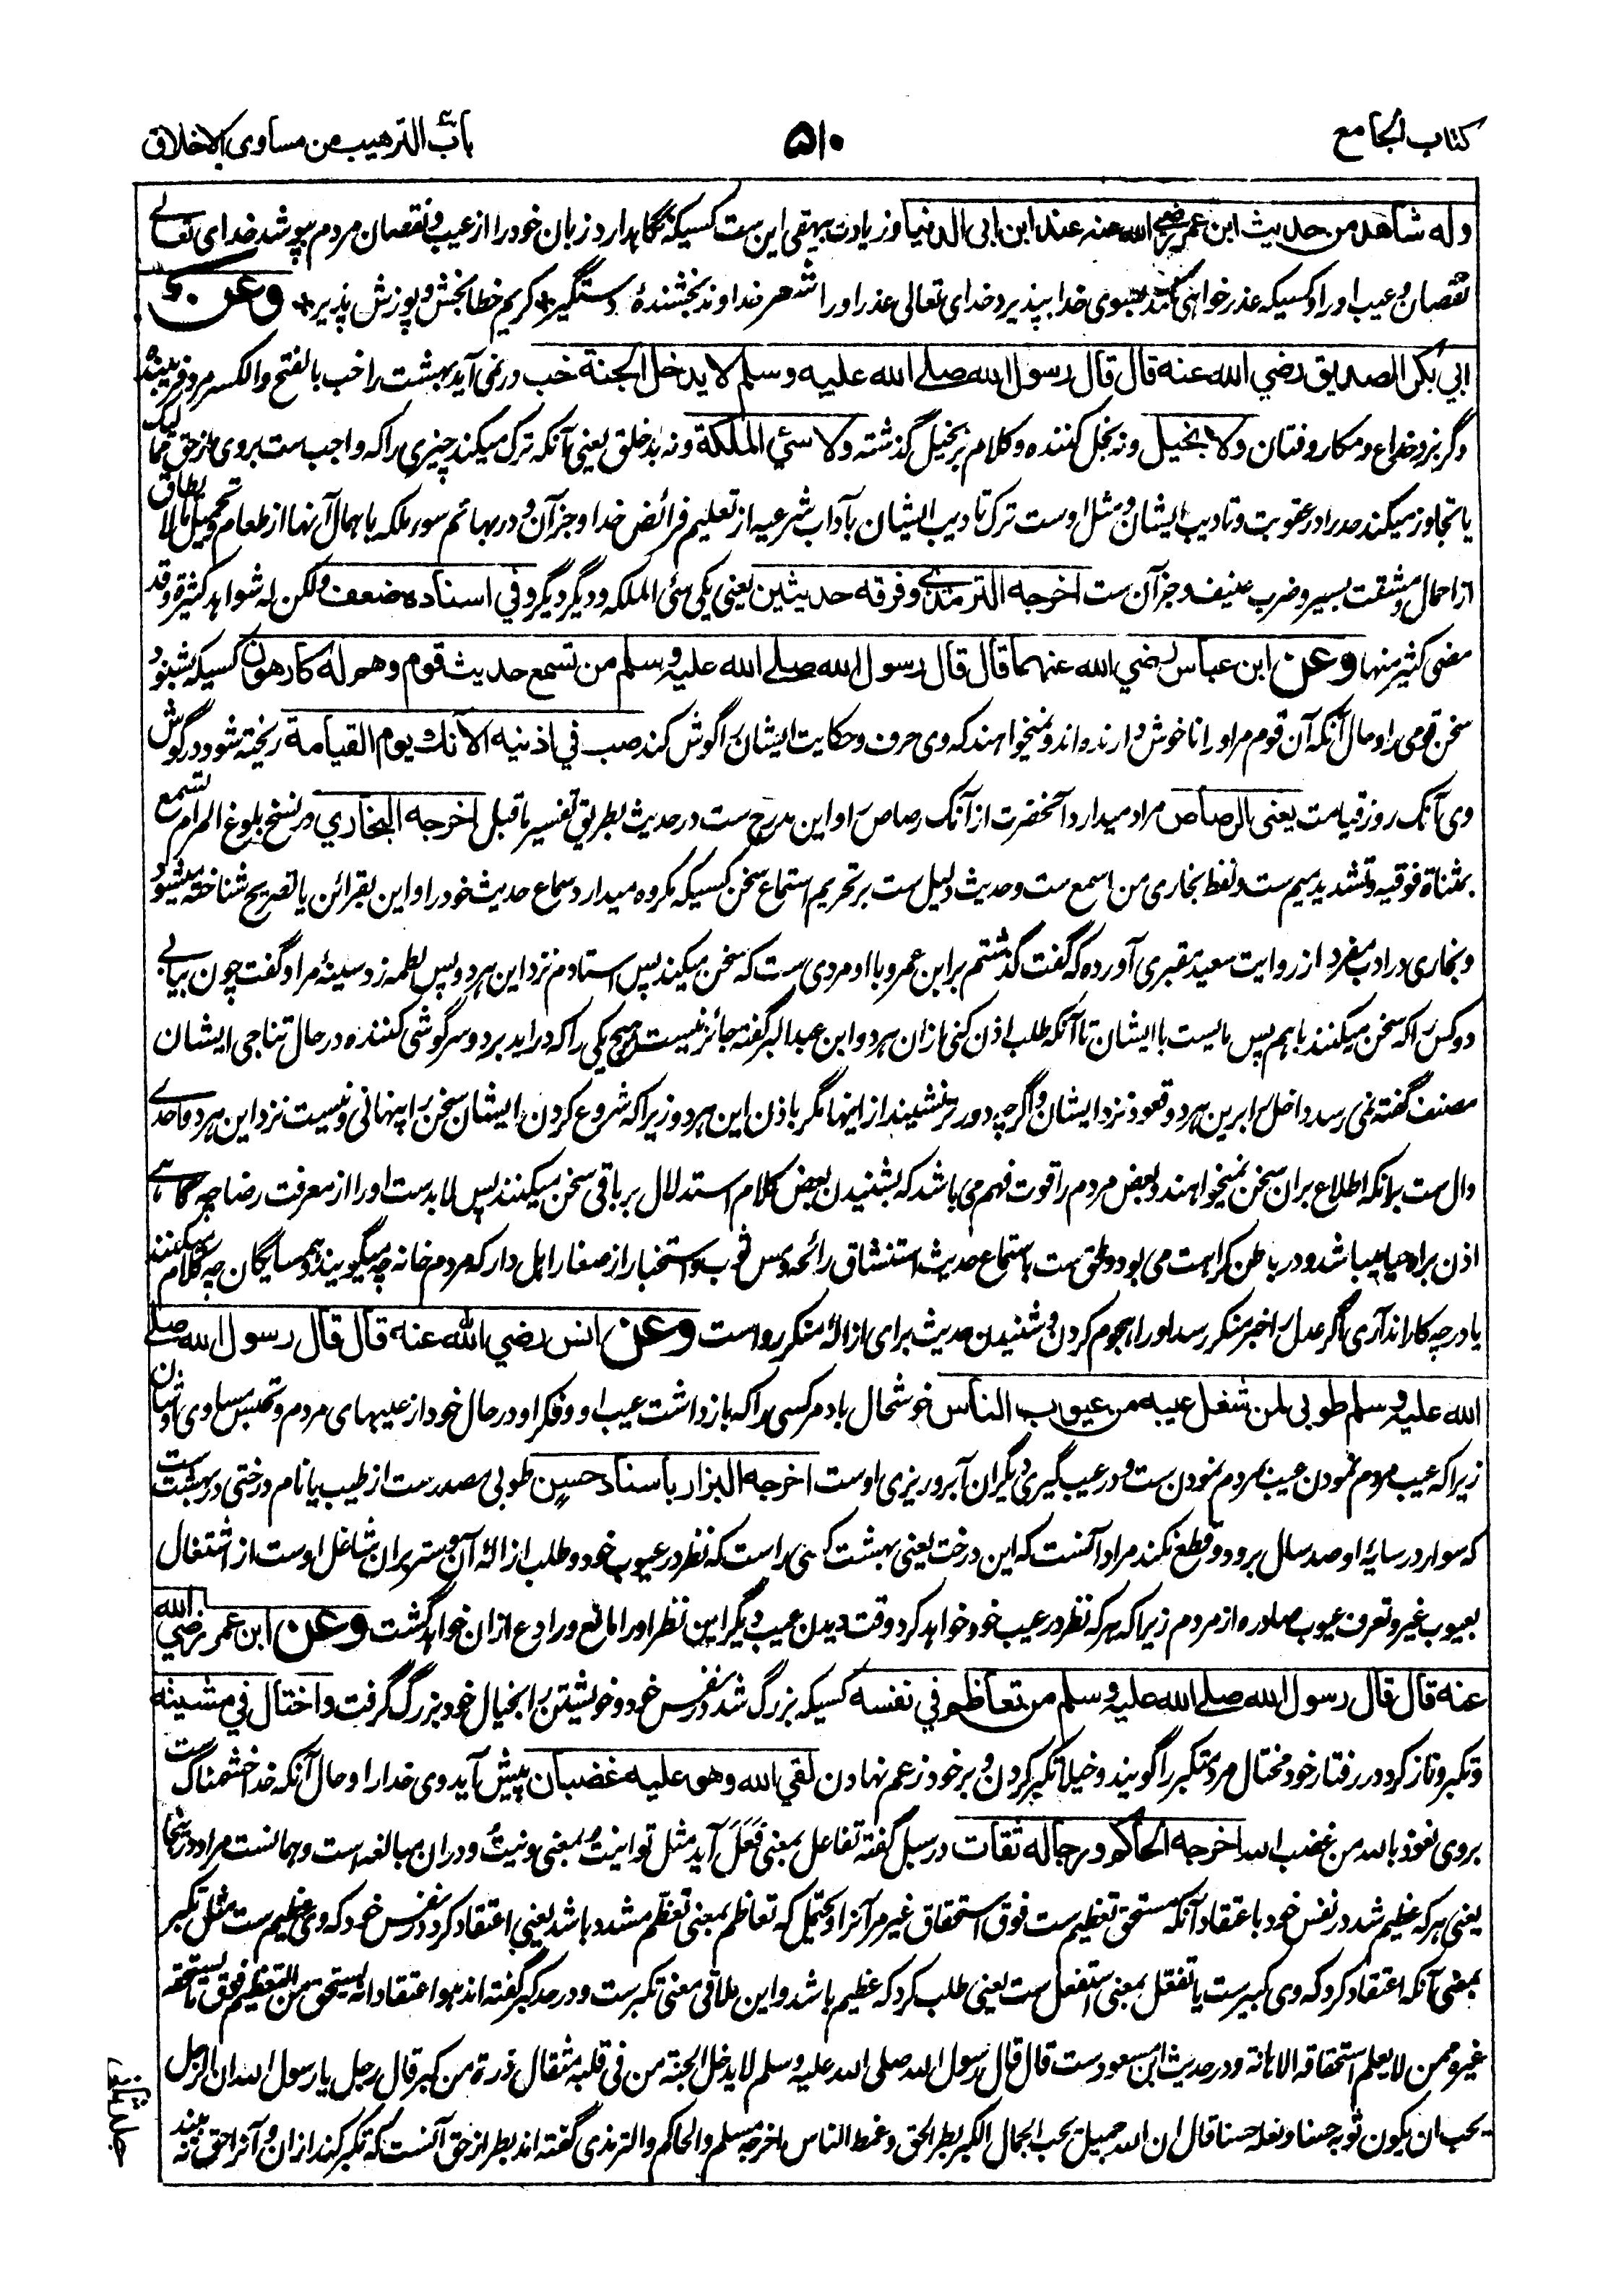 کتاب الجامع
۵۱۰
باب الترهیب من مساوی الاخلاق
وله شاهد من حدیث ابن عمر رضی الله عنه عند ابن ابی الدنیا وزیادت بیهقی این ست کسیکه نگاهدارد زبان خود را از عیب و نقصان مردم بپوشد خدای تعالے
نقصان و عیب او را و کسیکه عذر خواهی کند بسوی خدا بپذیرد خدای تعالی عذر او را شعر خداوند بخشندهٔ دستگیر * کریم خطا بخش و پوزش پذیر * وعن
ابي بکر الصدیق رضي الله عنه قال قال رسول الله صلے الله علیه وسلم لا یدخل الجنة خب در نمی آید بهشت را خب بالفتح والکسر مرد فریبنده
وگربز و خداع و مکار و فتان ولا بخیل ونه بخل کننده و کلام بر بخیل گذشته ولا سيئ الملکة ونه بد خلق یعنی آنکه ترک میکند چیزی را که واجب ست بروی از حق ممالیک
یا تجاوز میکند حد را در عقوبت و تادیب ایشان و مثل اوست ترک تادیب ایشان بآداب شرعیه از تعلیم فرائض خدا و جز آن و در بهائم سوء ملکه باهمال آنها از طعام و تحمیل مالا یطاق
از احمال و مشقت بسیر و ضرب عنیف و جز آن ست اخرجه الترمذي وفرقه حدیثین یعنی یکی سئی الملکه و دیگر دیگر وفي اسناده ضعف ولکن له شواهد کثیرة وقد
مضی کثیر منها وعن ابن عباس رضي الله عنهما قال قال رسول الله صلے الله علیه وسلم من تسمع حدیث قوم وهم له کارهون کسیکه بشنود
سخن قومی را و حال آنکه آن قوم مر او را ناخوش دارنده اند و نمیخواهند که وی حرف و حکایت ایشان را گوش کند صب في اذنیه الآنك یوم القیامة ریخته شود در گوش
وی آنک روز قیامت یعنی الرصاص مراد میدارد آنحضرت از آنک رصاص را و این مدرج ست در حدیث بطریق تفسیر ما قبل اخرجه البخاري در نسخ بلوغ المرام تسمع
بمثناة فوقیه و تشدید میم ست و لفظ بخاری من استمع ست و حدیث دلیل ست بر تحریم استماع سخن کسیکه مکروه میدارد سماع حدیث خود را و این بقرائن یا تصریح شناخته میشود
و بخاری در ادب مفرد از روایت سعید مقبری آورده که گفت گذشتم بر ابن عمر و با او مردی ست که سخن میکند پس استادم نزد این هر دو پس لطمه زد سینهٔ مرا و گفت چون بیابی
دو کس را که سخن میکنند باهم پس مایست با ایشان تا آنکه طلب اذن کنی از ان هر دو و ابن عبدالبر گفته جائز نیست هیچ یکی را که در آید بر دو سرگوشی کننده در حال تناجی ایشان
مصنف گفته نمی رسد داخل را برین هر دو قعود نزد ایشان و اگرچه دورتر نشیند از اینها مگر باذن این هر دو زیرا که شروع کردن ایشان سخن را پنهانی و نیست نزد این هر دو احدے
دال ست بر آنکه اطلاع بران سخن نمیخواهند و بعض مردم را قوت فهم می باشد که بشنیدن بعض کلام استدلال بر باقی سخن میکنند پس لابدست او را از معرفت رضا چه گاهے
اذن براه حیا میباشد و در باطن کراهت می بود و ملحق ست باستماع حدیث استنشاق رائحه و مس ثوب و استخبار از صغار اهل دار که مردم خانه چه میگویند و همسایگان چه کلام میکنند
یا در چه کار اند آری اگر عدل را خبر منکر رسد او را هجوم کردن و شنیدن حدیث برای ازالهٔ منکر رواست وعن انس رضي الله عنه قال قال رسول الله صلے
الله علیه وسلم طوبی لمن شغل عیبه من عیوب الناس خوشحال باد مر کسی را که باز داشت عیب او و فکر او در حال خود از عیبهای مردم و تجسس مساوی اوشان
زیرا که عیب مردم نمودن عیب بمردم نمودن ست و در عیب گیری دیگران آبرو ریزی اوست اخرجه البزار باسناد حسن طوبی مصدرست از طیب یا نام درختی در بهشت ست
که سوار در سایهٔ او صد سال برود و قطع نکند مراد آنست که این درخت یعنی بهشت کسی راست که نظر در عیوب خود و طلب ازالهٔ آن و ستر بران شاغل اوست از اشتغال
بعیوب غیر و تعرف عیوب صادره از مردم زیرا که هر که نظر در عیب خود خواهد کرد وقت دیدن عیب دیگر این نظر او را مانع و رادع ازان خواهد گشت وعن ابن عمر رضي الله
عنه قال قال رسول الله صلے الله علیه وسلم من تعاظم في نفسه کسیکه بزرگ شد در نفس خود و خویشتن را بخیال خود بزرگ گرفت واختال في مشیته
و تکبر و ناز کرد در رفتار خود مختال مرد متکبر را گویند و خیلا تکبر کردن و بر خود زعم نهادن لقي الله وهو علیه غضبان پیش آید وی خدا را و حال آنکه خدا خشمناک ست
بروی نعوذ بالله من غضب الله اخرجه الحاکم ورجاله ثقات در سبل گفته تفاعل بمعنی فَعَلَ آید مثل توانیتُ بمعنی ونیتُ و دران مبالغه است و همانست مراد در اینجا
یعنی هر که عظیم شد در نفس خود باعتقاد آنکه مستحق تعظیم ست فوق استحقاق غیر مر آنرا و یحتمل که تعاظم بمعنی تعظّم مشدد باشد یعنی اعتقاد کرد در نفس خود که وی عظیم ست مثل تکبر
بمعنی آنکه اعتقاد کرد که وی کبیرست یا تفعّل بمعنی استفعل ست یعنی طلب کرد که عظیم باشد و این ملاقی معنی تکبرست و در حد کبر گفته اند هو اعتقاد انه یستحق من التعظیم فوق ما یستحقه
غیره ممن لا یعلم استحقاقه الاهانة و در حدیث ابن مسعودست قال قال رسول الله صلی الله علیه وسلم لا یدخل الجنة من فی قلبه مثقال ذرة من کبر قال رجل یا رسول الله ان الرجل
یحب ان یکون ثوبه حسنا و نعله حسنا قال ان الله جمیل یحب الجمال الکبر بطر الحق و غمط الناس اخرجه مسلم والحاکم والترمذی گفته اند بطر از حق آنست که تکبر کند ازان و آنرا حق نه بیند
جلد ثانی